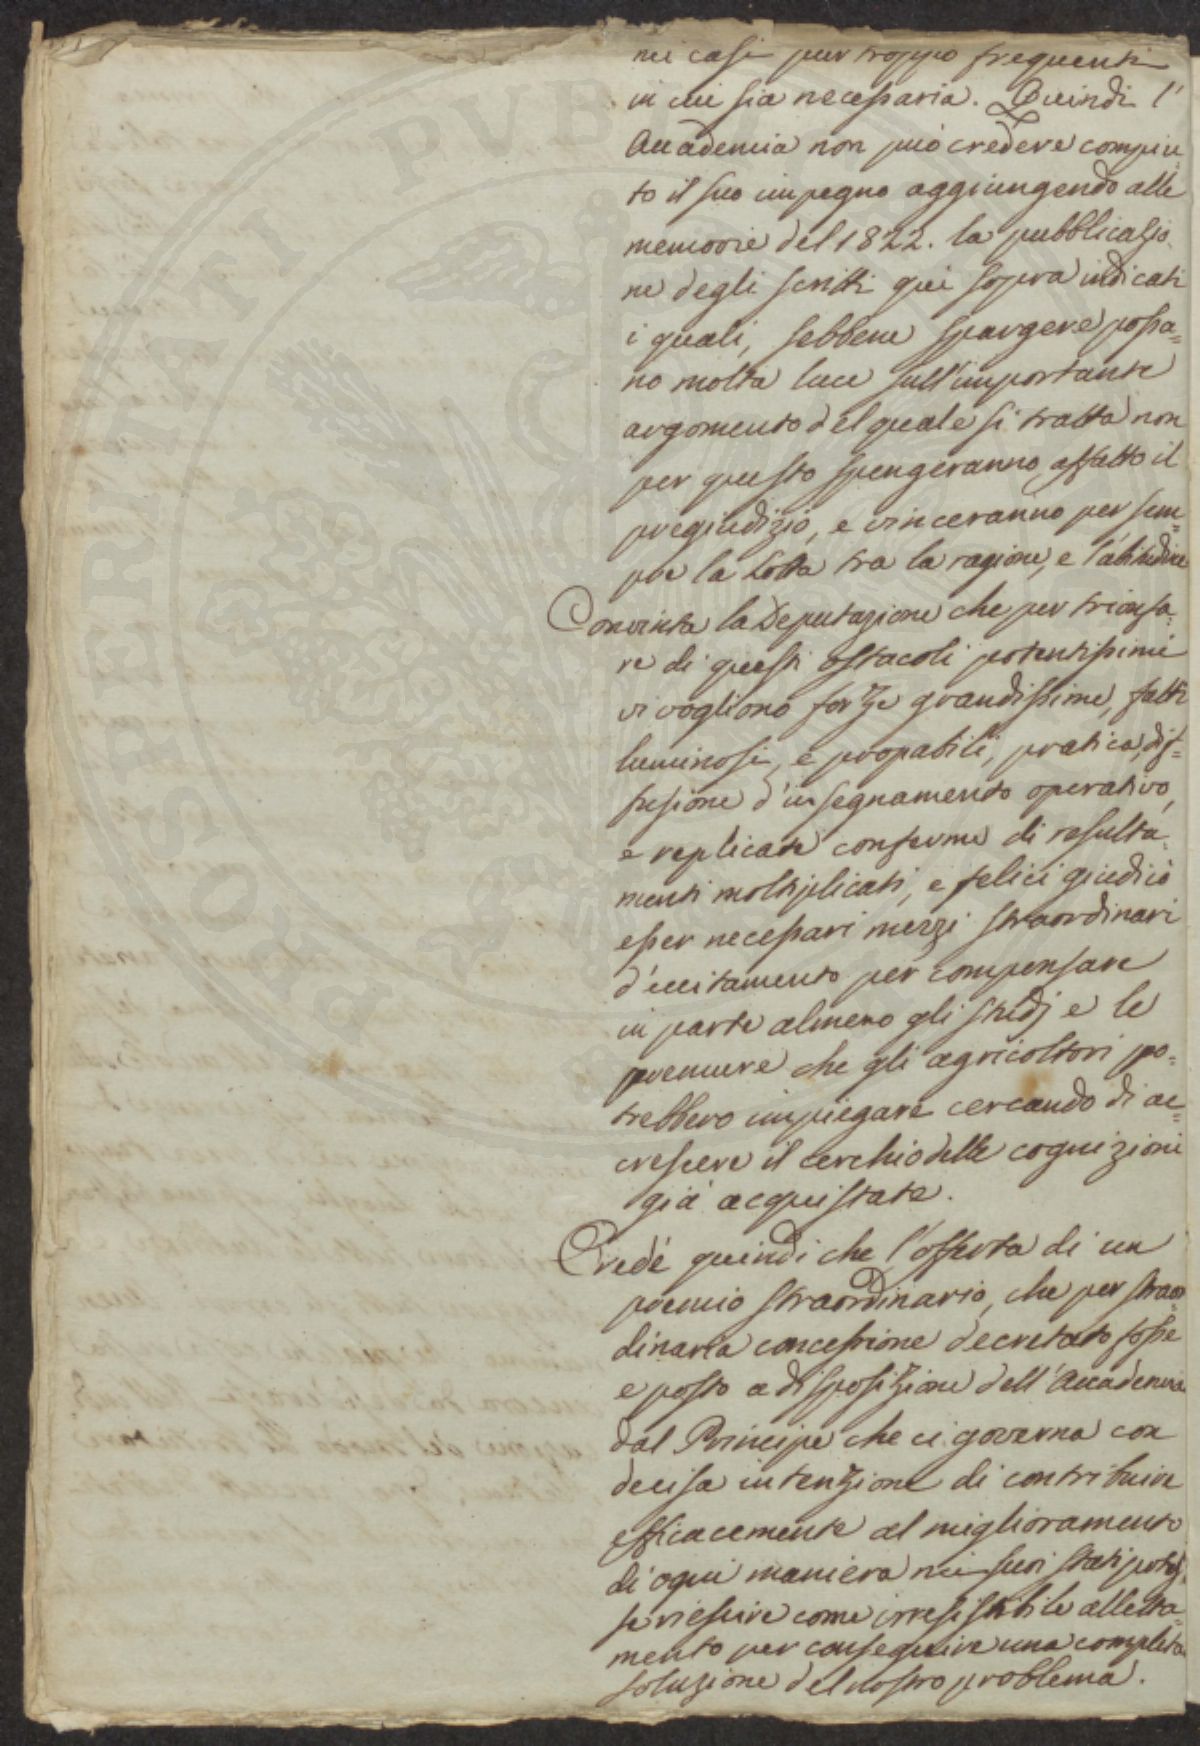 nei casi pur troppo frequenti
in cui sia necessaria. Quindi l'
Accademia non può credere compiu=
to il suo impegno aggiungendo alle
memorie del 1822. la pubblicazio
ne degli scritti quì sopra indicati
i quali, sebbene spargere possa=
no molta luce sull'importante
argomento del quale si tratta non
per questo spengeranno affatto il
pregiudizio, e vinceranno per sem=
pre la Lotta tra la ragione, e l'abitudine
Convinta la Deputazione che per trionfa=
re di questi ostacoli potentissimi
vi vogliono forze grandissime, fatti
luminosi, e propabili, pratica, dif=
fusione d'insegnamento operativo,
e replicate conferme di resulta=
menti moltiplicati, e felici giudicò
esser necessari mezzi straordinari
d'eccitamento per compensare
in parte almeno gli studj e le
premure che gli agricoltori po=
trebbero impiegare cercando di ac=
crescere il cerchio delle cognizioni
già acquistate.
Credè quindi che l'offerta di un
premio straordinario, che per straor=
dinaria concessione decretato fosse
e posto a disposizione dell'Accademia
dal Principe che ci governa con
decisa intenzione di contribuire
efficacemente al miglioramento
di ogni maniera nei suoi stati potes=
se riescire come irresistibile alletta=
mento per conseguire una completa
soluzione del nostro problema.
PROSPERITATI PVBLICAE